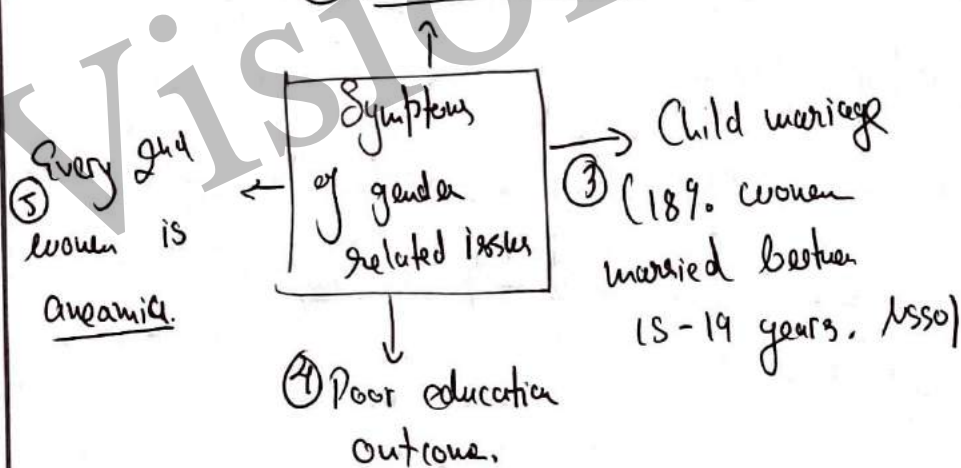 Symptoms
of gender
related issues
③ Child mariage
(18% women
married between
15-19 years. NSSO)
④ Poor education
outcome.
⑤ Every 2nd
women is
aneamia.
Vision